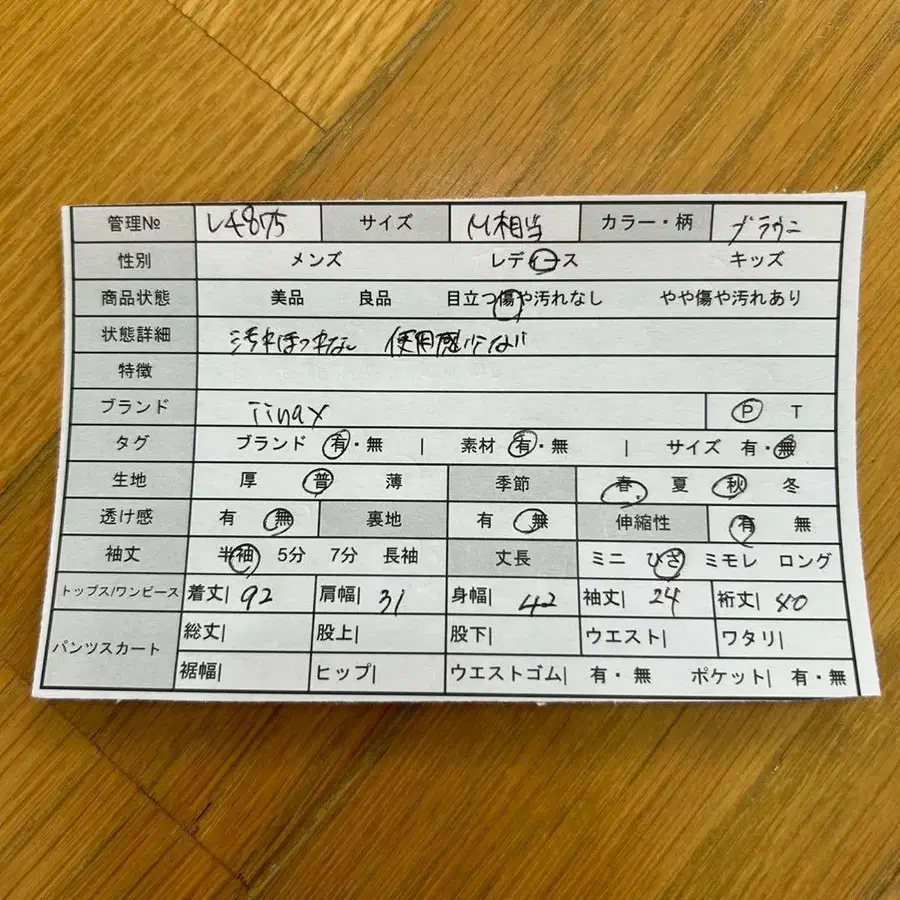 管理№ L4875 サイズ M相当 カラー・柄 ブラウン
性別 メンズ レディース キッズ
商品状態 美品 良品 目立つ傷や汚れなし やや傷や汚れあり
状態詳細 汚れほつれなし 使用感少ない
特徴
ブランド P T
タグ ブランド 有・無 | 素材 有・無 | サイズ 有・無
生地 厚 普 薄 季節 春 夏 秋 冬
透け感 有 無 裏地 有 無 伸縮性 有 無
袖丈 半袖 5分 7分 長袖 丈長 ミニ ひざ ミモレ ロング
トップス/ワンピース 着丈| 92 肩幅| 31 身幅| 42 袖丈| 24 裄丈| 40
パンツスカート 総丈| 股上| 股下| ウエスト| ワタリ|
裾幅| ヒップ| ウエストゴム| 有・無 ポケット| 有・無